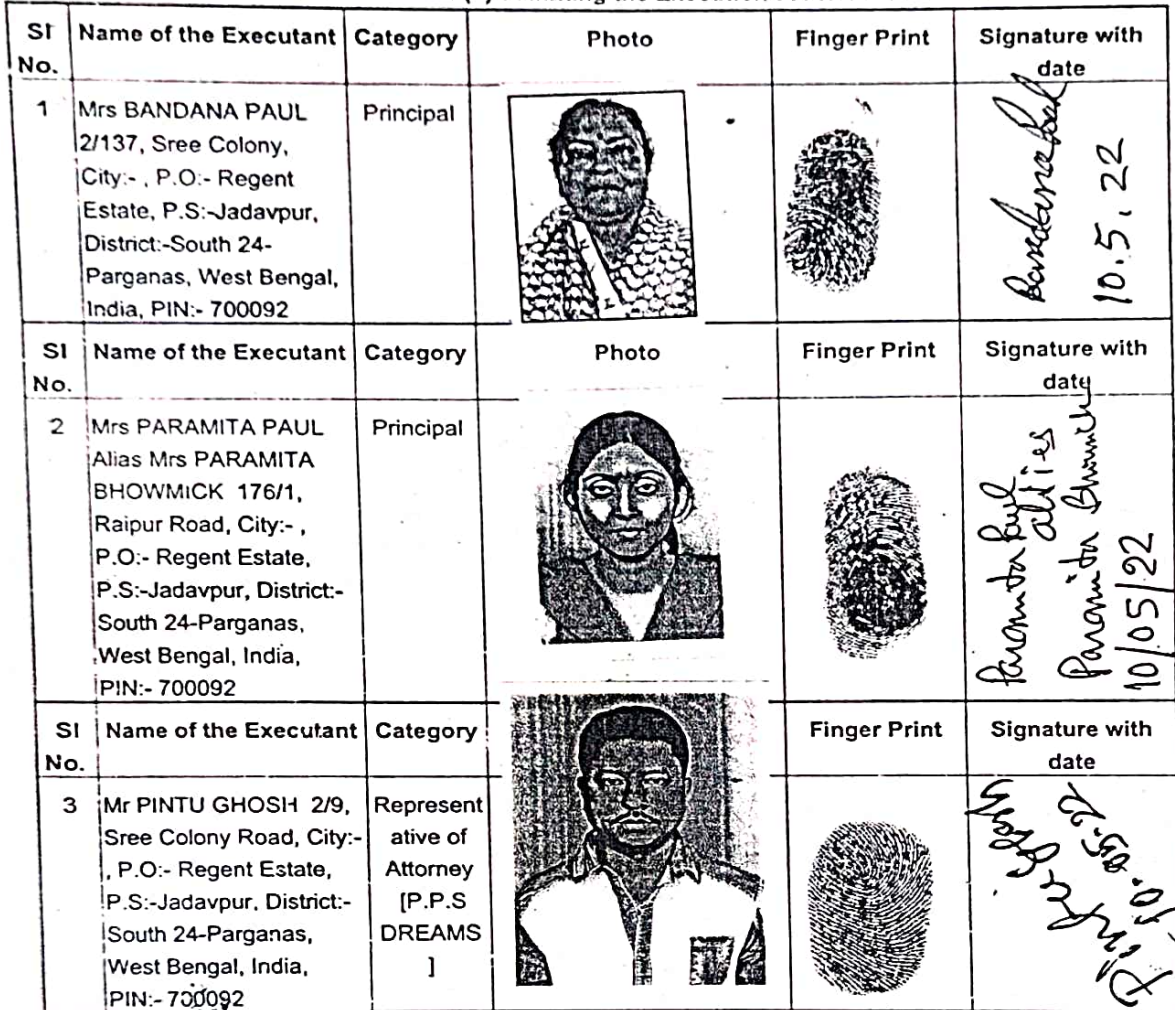 Sl No. Name of the Executant Category Photo Finger Print Signature with date
1 Mrs BANDANA PAUL Principal
2/137, Sree Colony,
City:- , P.O:- Regent
Estate, P.S:-Jadavpur,
District:-South 24-
Parganas, West Bengal,
India, PIN:- 700092
Bandana Paul
10.5.22
Sl No. Name of the Executant Category Photo Finger Print Signature with date
2 Mrs PARAMITA PAUL Principal
Alias Mrs PARAMITA
BHOWMICK 176/1,
Raipur Road, City:- ,
P.O:- Regent Estate,
P.S:-Jadavpur, District:-
South 24-Parganas,
West Bengal, India,
PIN:- 700092
Paramita Paul
allies
Paramita Bhowmick
10/05/22
Sl No. Name of the Executant Category Finger Print Signature with date
3 Mr PINTU GHOSH 2/9,
Sree Colony Road, City:-
, P.O:- Regent Estate,
P.S:-Jadavpur, District:-
South 24-Parganas,
West Bengal, India,
PIN:- 700092
Represent
ative of
Attorney
[P.P.S
DREAMS
]
Pintu Ghosh
10-05-22